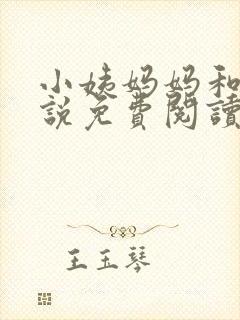 小姨妈妈和
說免費閱讀
王玉琴